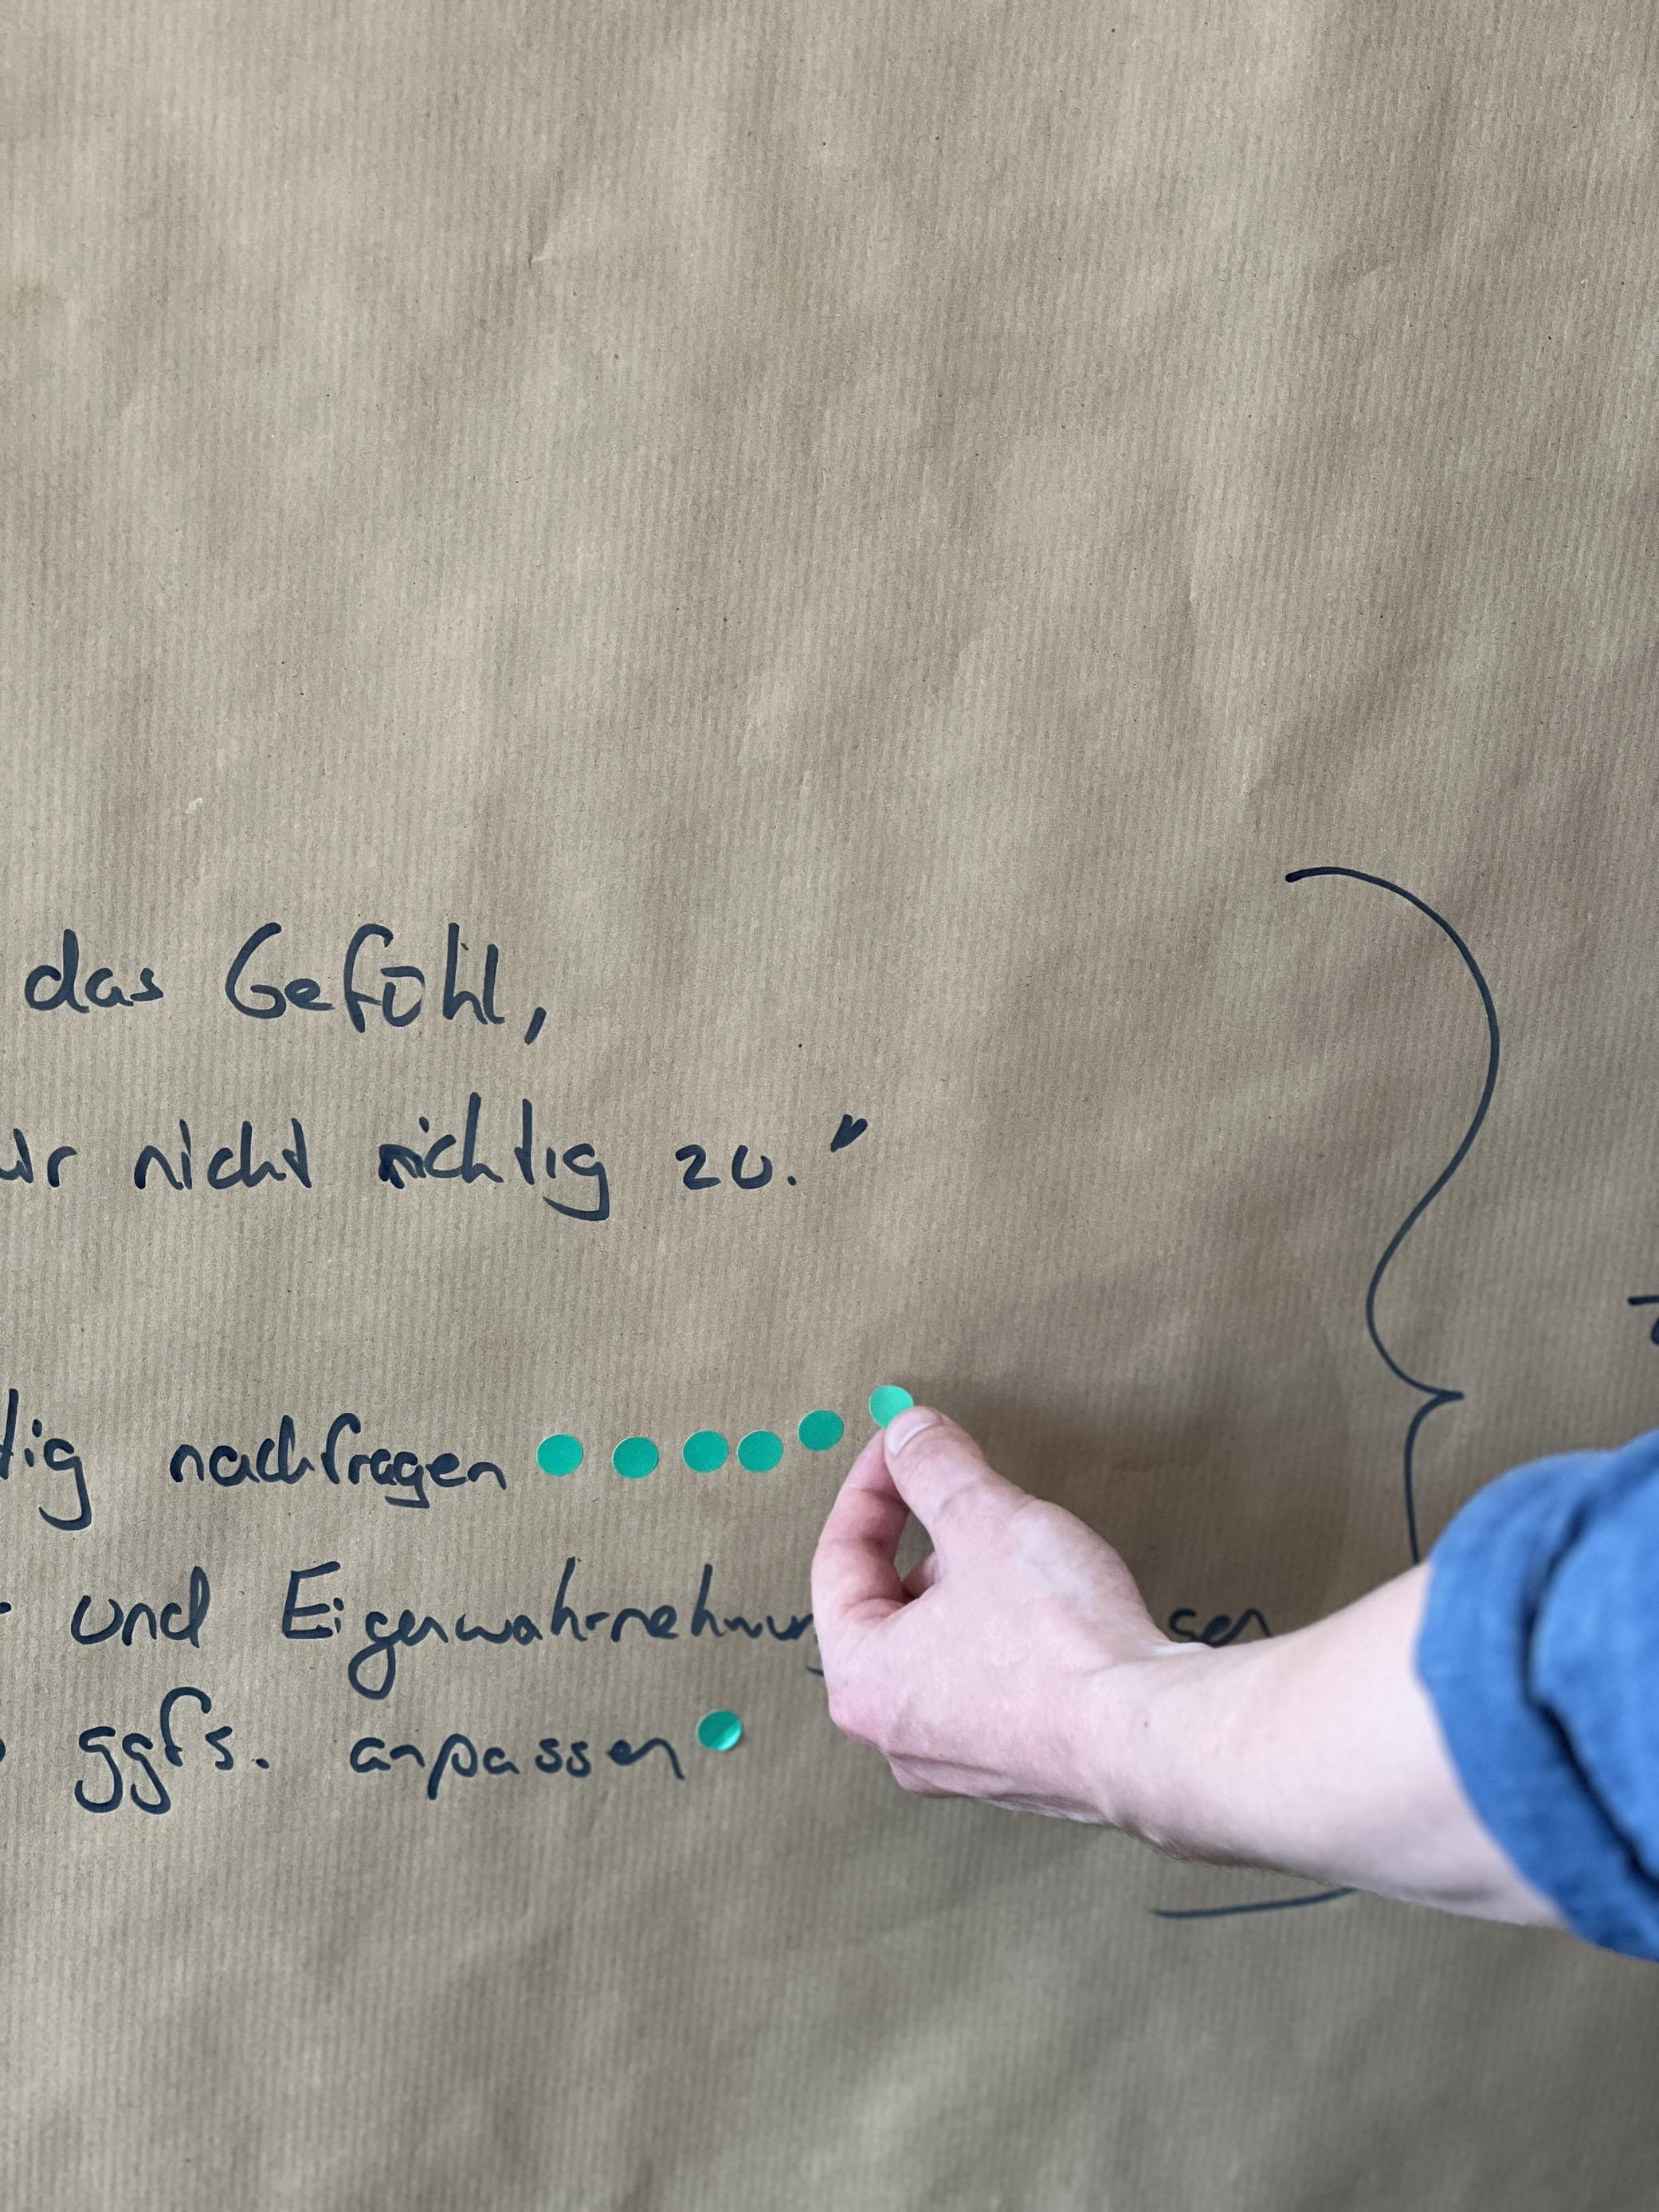 das Gefühl,
nicht richtig zu."
tig nachfragen
und Eigenwahrnehmun sen
ggfs. anpassen